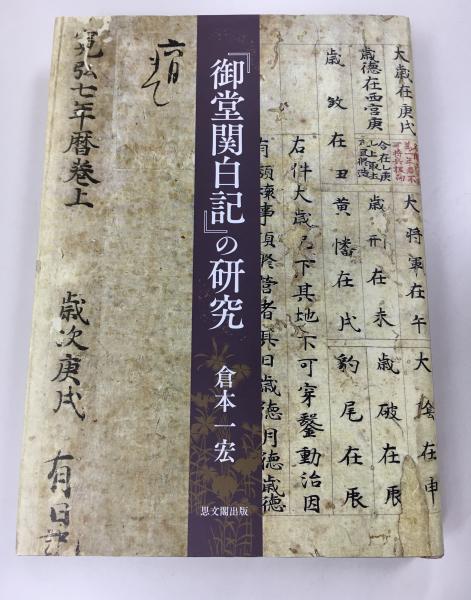 『御堂関白記』の研究
倉本一宏
思文閣出版
大歳在庚戌
大将軍在午
大陰在申
歳徳在西宮庚
歳刑在未
歳破在辰
歳殺在丑
黄幡在戌
豹尾在辰
右件大歳已下其地不可穿鑿動治因
有頽壊事須修営者其日歳徳月徳歳徳
寛弘七年暦巻上 歳次庚戌 有日記